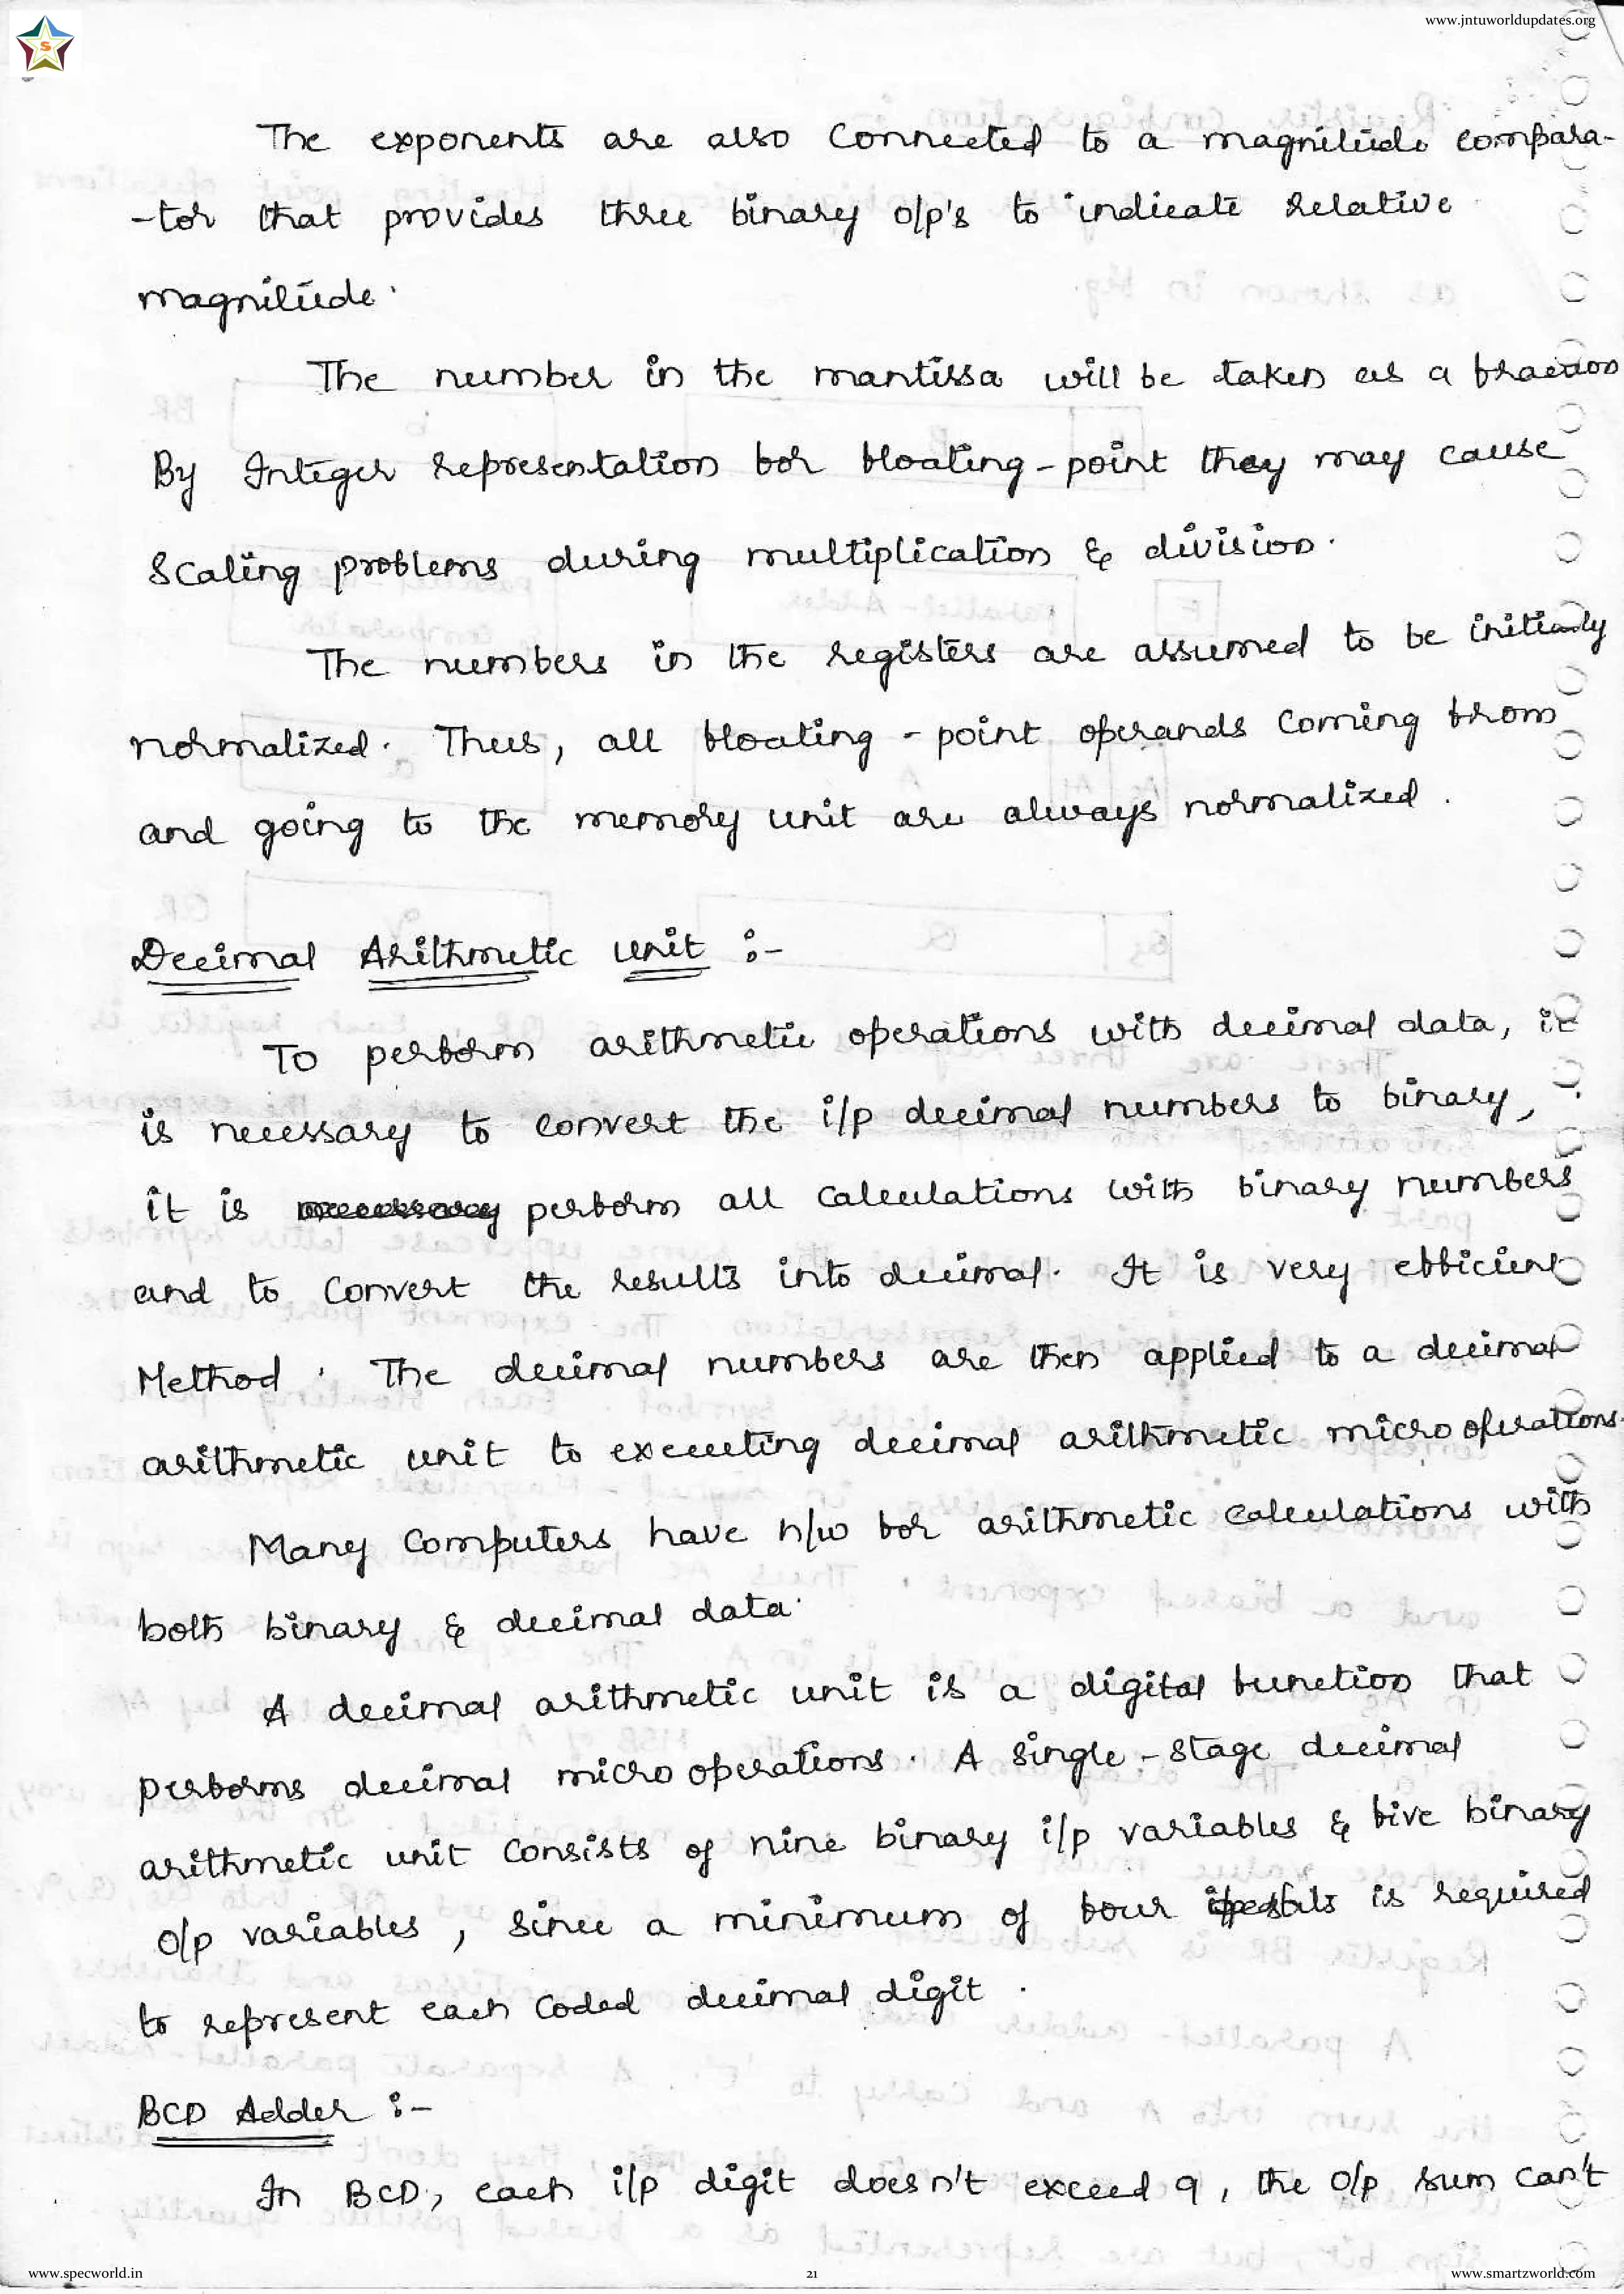 www.jntuworldupdates.org
S
The exponents are also Connected to a magnitude compara-
-tor that provides three binary o/p's to indicate relative
magnitude.
The number in the mantissa will be taken as a fraction
By Integer representation for floating-point they may cause
Scaling problems during multiplication & division.
The numbers in the registers are assumed to be initially
normalized. Thus, all floating-point operands coming from
and going to the memory unit are always normalized.
Decimal Arithmetic Unit :-
To perform arithmetic operations with decimal data, it
is necessary to convert the i/p decimal numbers to binary,
it is perform all calculations with binary numbers
and to convert the results into decimal. It is very efficient
Method. The decimal numbers are then applied to a decimal
arithmetic unit to executing decimal arithmetic microoperations.
Many Computers have h/w for arithmetic calculations with
both binary & decimal data.
A decimal arithmetic unit is a digital function that
performs decimal micro operations. A single-stage decimal
arithmetic unit consists of nine binary i/p variables & five binary
o/p variables, since a minimum of four is required
to represent each coded decimal digit.
BCD Adder :-
In BCD, each i/p digit doesn't exceed 9, the o/p sum can't
www.specworld.in
21
www.smartzworld.com